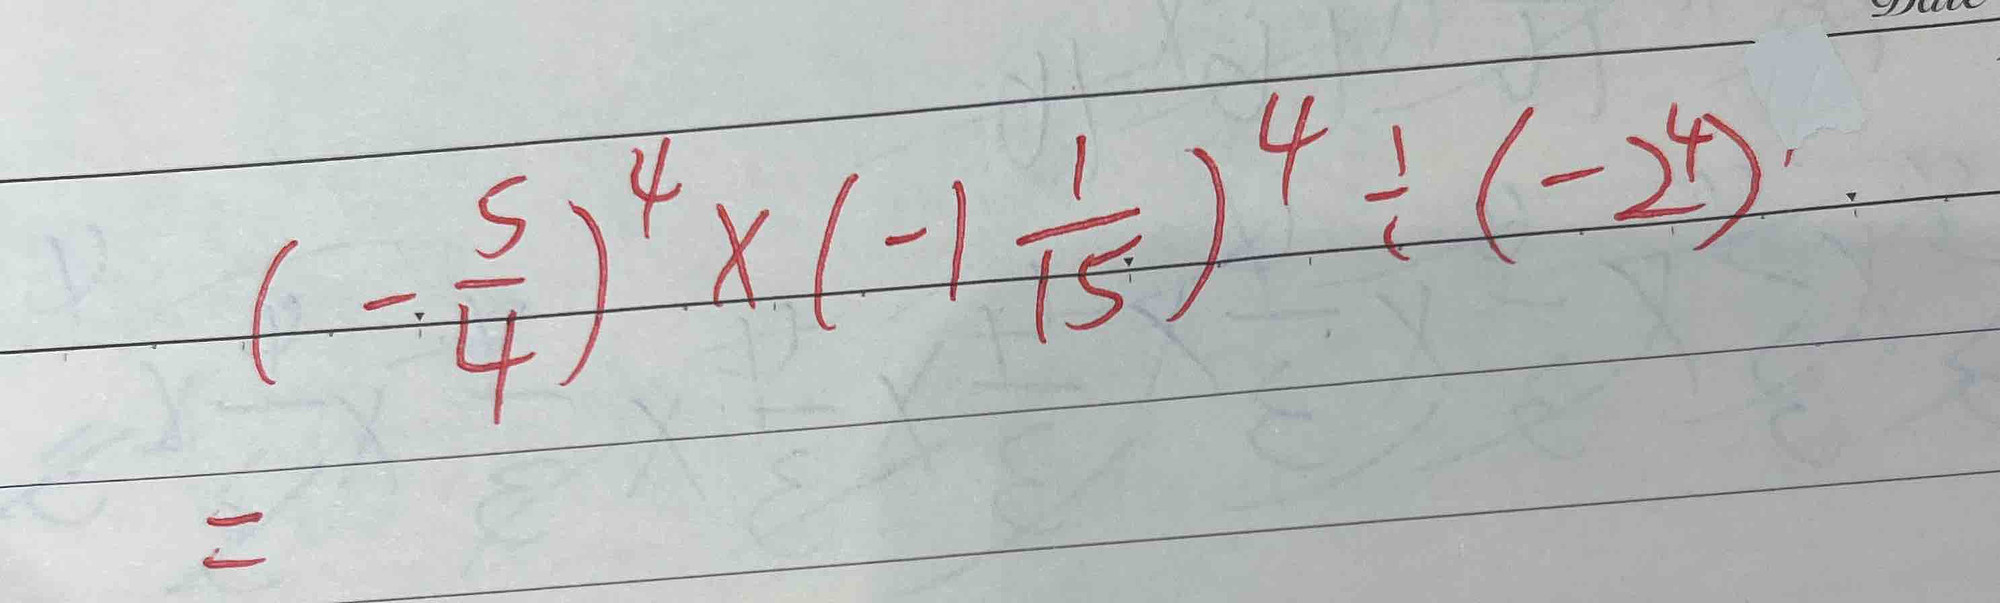 Date
(-5/4)^4 × (-1 1/15)^4 ÷ (-2^4)
=